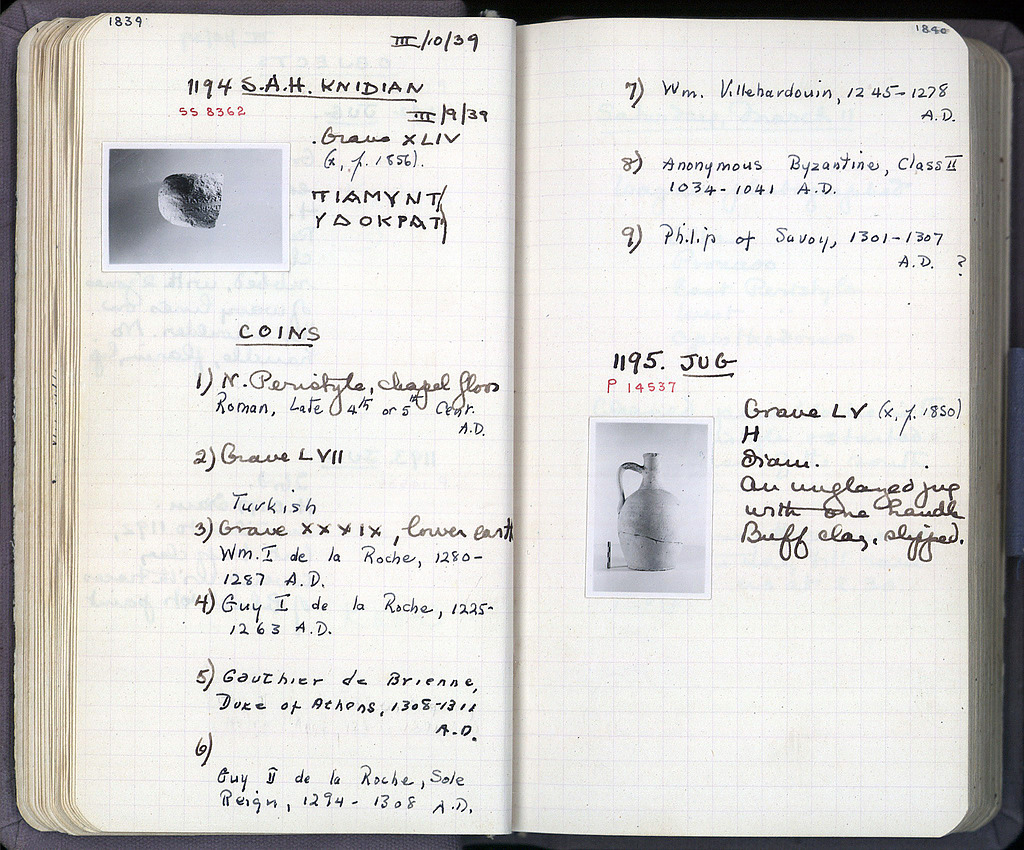 1839
III/10/39
1194 S.A.H. KNIDIAN
SS 8362
III/9/39
Grave XLIV
(x, p. 1856).
ΠΙΑΜΥΝΤ/
ΥΔΟΚΡΑΤ/
COINS
1) N. Peristyle, chapel floor
Roman, Late 4th or 5th Cent.
A.D.
2) Grave LVII
Turkish
3) Grave XXXIX, lower earth
Wm. I de la Roche, 1280-
1287 A.D.
4) Guy I de la Roche, 1225-
1263 A.D.
5) Gauthier de Brienne,
Duke of Athens, 1308-1311
A.D.
6)
Guy II de la Roche, Sole
Reign, 1294-1308 A.D.
1840
7) Wm. Villehardouin, 1245-1278
A.D.
8) Anonymous Byzantine, Class II
1034-1041 A.D.
9) Philip of Savoy, 1301-1307
A.D. ?
1195. JUG
P 14537
Grave LV (x, p. 1850)
H
Diam.
An unglazed jug
with one handle
Buff clay, slipped.